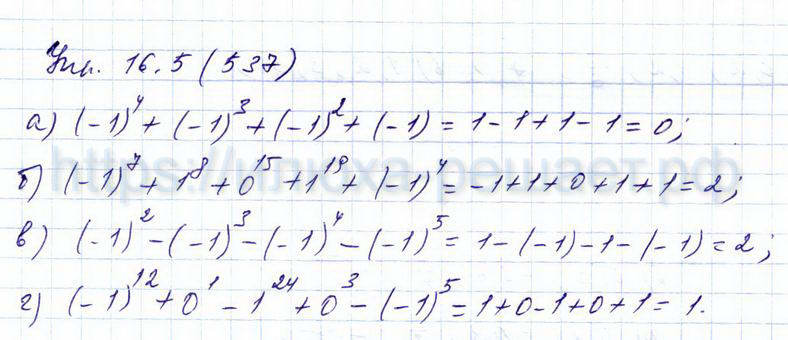 Упр. 16.5 (537)
а) (-1)⁴ + (-1)³ + (-1)² + (-1) = 1 - 1 + 1 - 1 = 0;
б) (-1)⁷ + 1⁸ + 0¹⁵ + 1¹⁹ + (-1)⁴ = -1 + 1 + 0 + 1 + 1 = 2;
в) (-1)² - (-1)³ - (-1)⁴ - (-1)⁵ = 1 - (-1) - 1 - (-1) = 2;
г) (-1)¹² + 0¹ - 1²⁴ + 0³ - (-1)⁵ = 1 + 0 - 1 + 0 + 1 = 1.
https://илюха-решает.рф